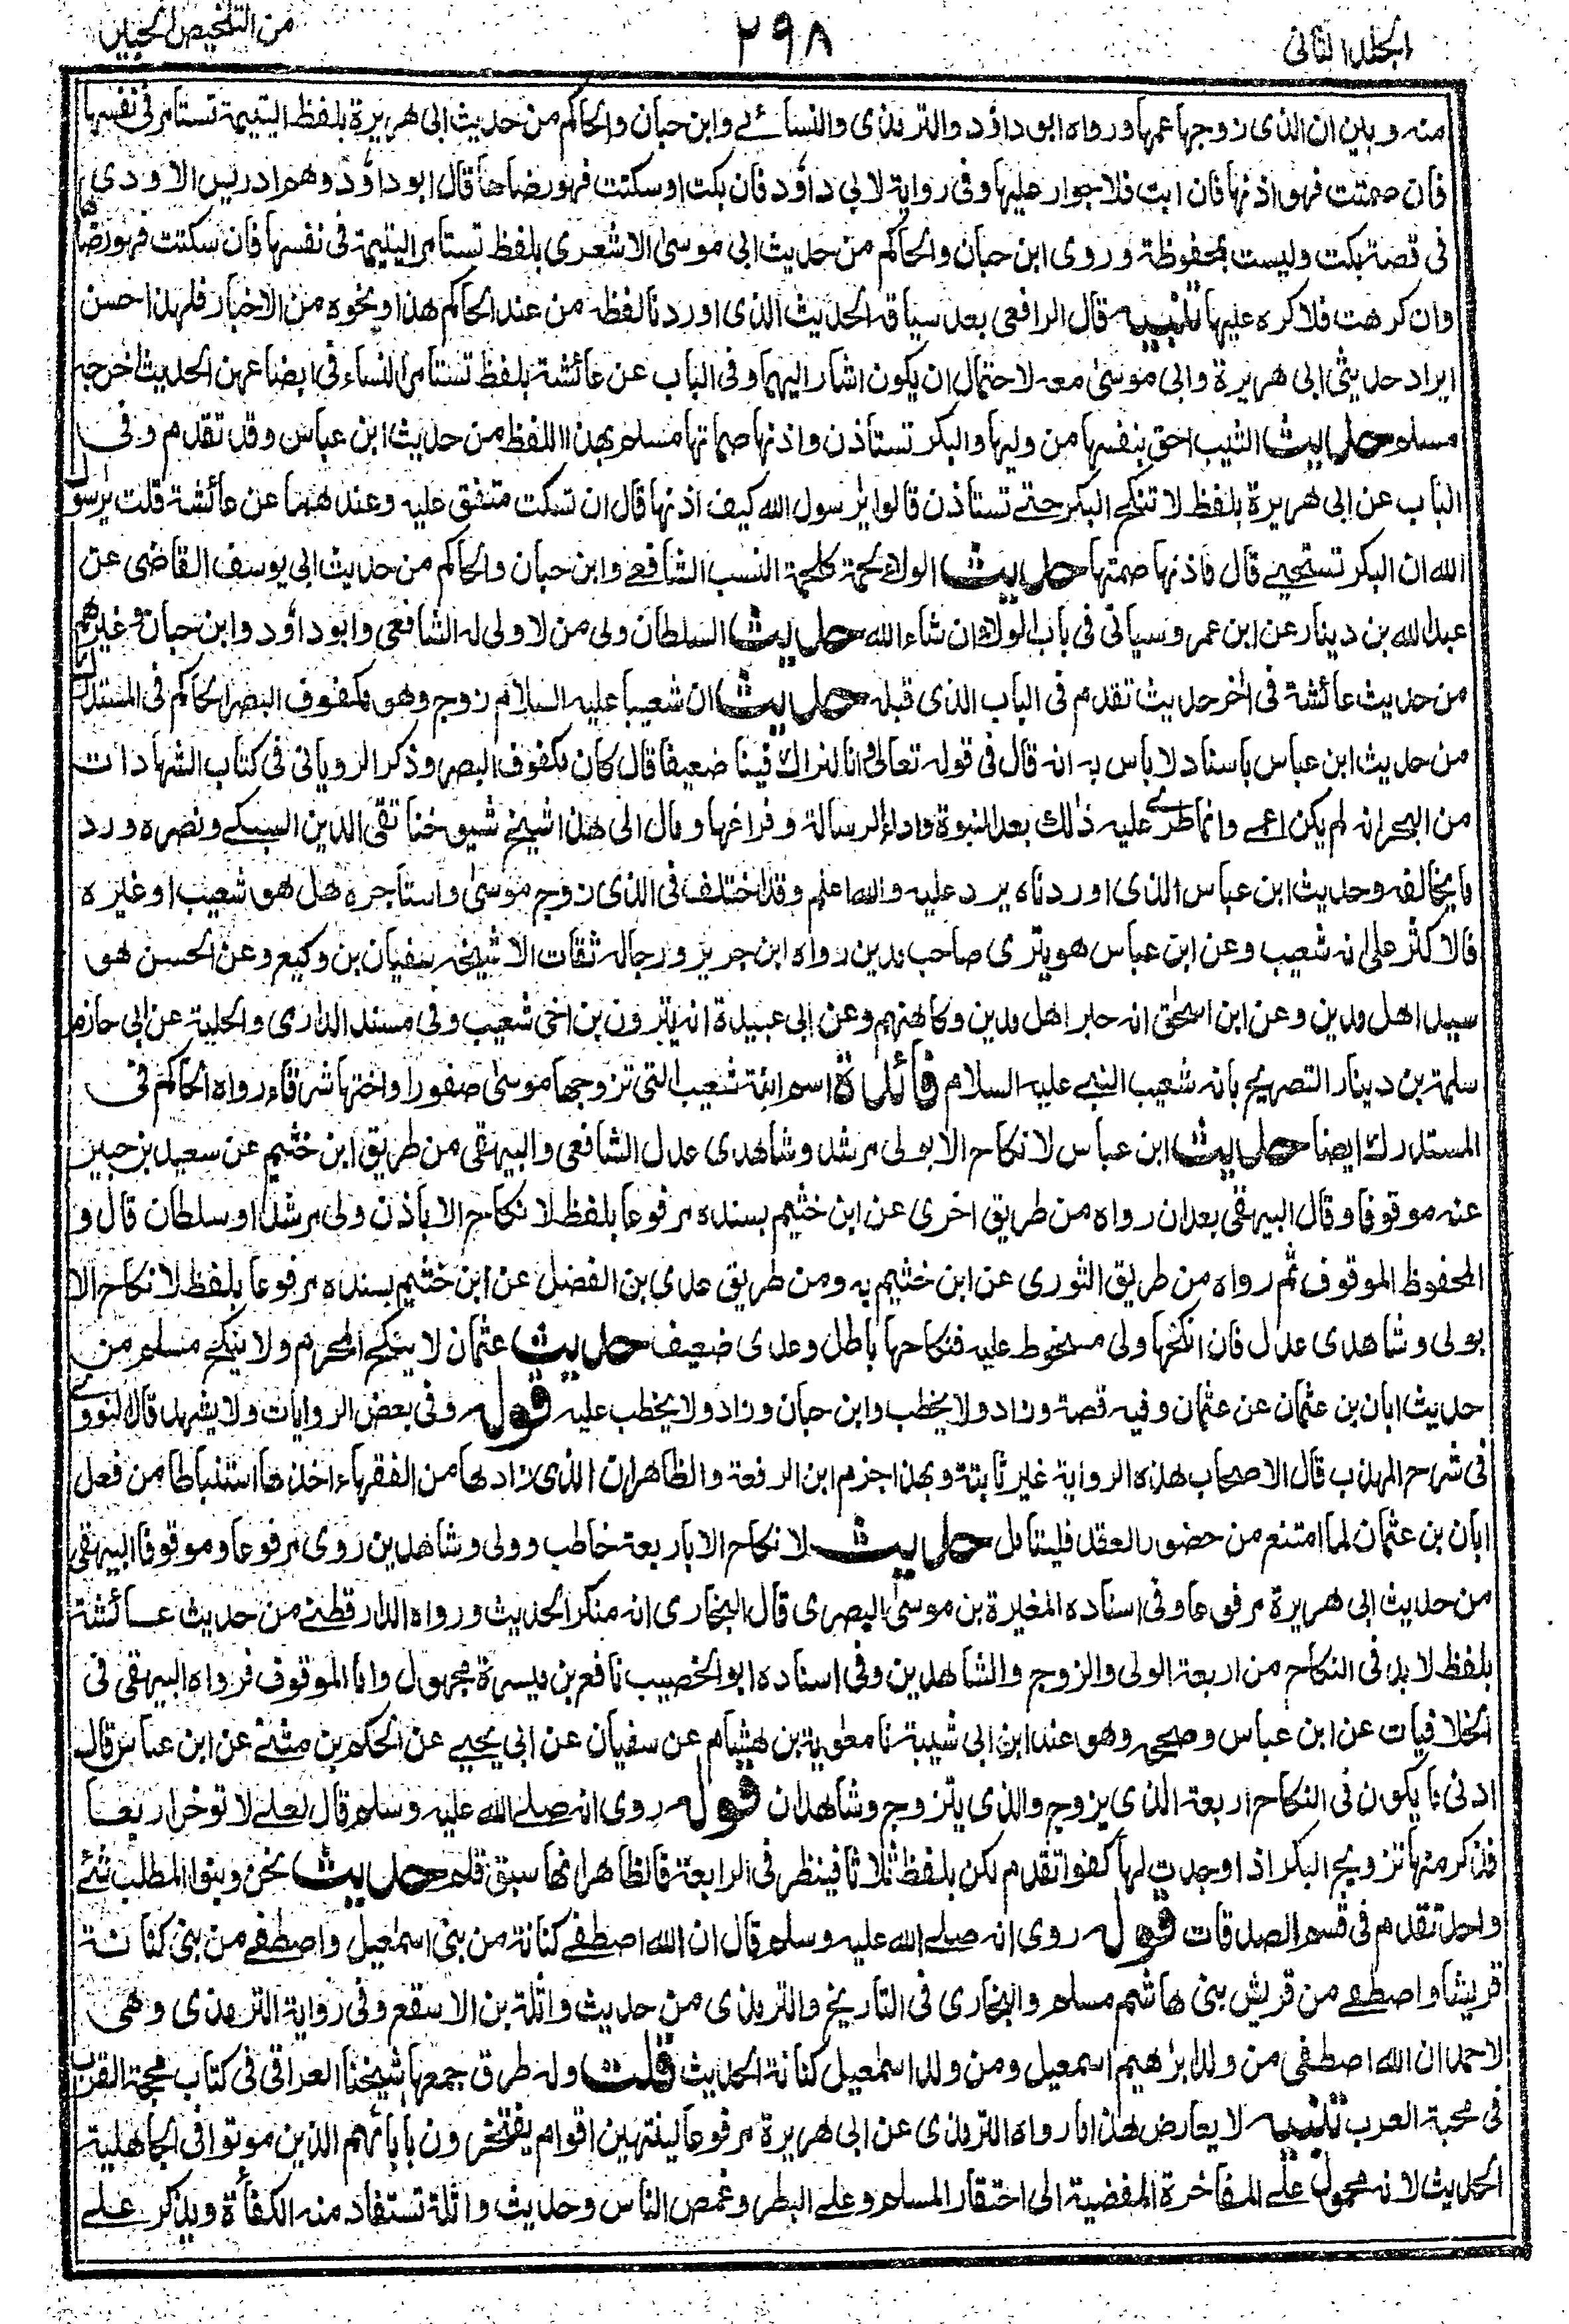 الجلد الثانى
٢٩٨
من التلخيص الحبير
منه وبين ان الذى زوجها عمها ورواه ابو داؤد والترمذى والنسائے وابن حبان والحاكم من حديث ابى هريرة بلفظ اليتيمة تستامر فى نفسها
فان صمتت فهو اذنها فان ابت فلا جواز عليها وفى رواية لابى داؤد فان بكت او سكتت فهو رضاها قال ابو داؤد وهم ادريس الاودى
فى قصة بكت وليست بمحفوظة وروى ابن حبان والحاكم من حديث ابى موسىٰ الاشعرى بلفظ تستامر اليتيمة فى نفسها فان سكتت فهو رضا
وان كرهت فلا كره عليها تنبيه قال الرافعى بعد سياقه الحديث الذى اوردنا لفظه من عند الحاكم هذا ونحوه من الاخبار فلهذا احسن
ايراد حديثى ابى هريرة وابى موسىٰ معه لاحتمال ان يكون اشار اليهما وفى الباب عن عائشة بلفظ تستامر النساء فى ابضاعهن الحديث اخرجه
مسلم حديث الثيب احق بنفسها من وليها والبكر تستاذن واذنها صماتها مسلم بهذا اللفظ من حديث ابن عباس وقد تقدم وفى
الباب عن ابى هريرة بلفظ لا تنكح البكر حتے تستاذن قالوا يٰرسول الله كيف اذنها قال ان تسكت متفق عليه وعندهما عن عائشة قلت يٰرسول
الله ان البكر تستحيے قال فاذنها صمتها حديث الولاء لحمة كلحمة النسب الشافعے وابن حبان والحاكم من حديث ابى يوسف القاضى عن
عبد الله بن دينار عن ابن عمر وسياتى فى باب الولاء ان شاء الله حديث السلطان ولى من لا ولى له الشافعى وابو داؤد وابن حبان وغيرهم
من حديث عائشة فى اٰخر حديث تقدم فى الباب الذى قبله حديث ان شعيبا عليه السلام زوج وهو مكفوف البصر الحاكم فى المستدرك
من حديث ابن عباس باسناد لا باس به انه قال فى قوله تعالىٰ وانا لنراك فينا ضعيفا قال كان مكفوف البصر وذكر الرويانى فى كتاب الشهادات
من البحر انه لم يكن اعمے وانما طرے عليه ذٰلك بعد النبوة واداء الرسالة وفراغها ومال الى هذا شيخ شيوخنا تقى الدين السبكے ونصره ورد
ما يخالفه وحديث ابن عباس الذى اوردناه يرد عليه والله اعلم وقد اختلف فى الذى زوج موسىٰ واستاجره هل هو شعيب او غيره
فالاكثر علىٰ انه شعيب وعن ابن عباس هو يثرى صاحب مدين رواه ابن جرير ورجاله ثقات الا شيخه سفيان بن وكيع وعن الحسن هو
سيد اهل مدين وعن ابن اسحٰق انه حبر اهل مدين وكاهنهم وعن ابى عبيدة انه يثرون بن اخى شعيب وفى مسند الدارمى والحلية عن ابى حازم
سلمة بن دينار التصريح بانه شعيب النبے عليه السلام فائدة اسم ابنة شعيب التى تزوجها موسىٰ صفورا واختها شرقاء رواه الحاكم فى
المستدرك ايضا حديث ابن عباس لا نكاح الا بولى مرشد وشاهدى عدل الشافعى والبيهقى من طريق ابن خثيم عن سعيد بن جبير
عنه موقوفا وقال البيهقى بعد ان رواه من طريق اخرى عن ابن خثيم بسنده مرفوعا بلفظ لا نكاح الا باذن ولى مرشد او سلطان قال و
المحفوظ الموقوف ثم رواه من طريق الثورى عن ابن خثيم به ومن طريق عدى بن الفضل عن ابن خثيم بسنده مرفوعا بلفظ لا نكاح الا
بولى وشاهدى عدل فان انكحها ولى مسخوط عليه فنكاحها باطل وعدى ضعيف حديث عثمان لا ينكح المحرم ولا ينكح مسلم من
حديث ابان بن عثمان عن عثمان وفيه قصة وزاد ولا يخطب وابن حبان وزاد ولا يخطب عليه قوله وفى بعض الروايات ولا يشهد قال النووے
فى شرح المهذب قال الاصحاب هذه الرواية غير ثابتة وبهذا جزم ابن الرفعة والظاهر ان الذى زادها من الفقهاء اخذها استنباطا من فعل
ابان بن عثمان لما امتنع من حضور العقد فليتامل حديث لا نكاح الا باربعة خاطب وولى وشاهدين روى مرفوعا وموقوفا البيهقى
من حديث ابى هريرة مرفوعا وفى اسناده المغيرة بن موسىٰ البصرى قال البخارى انه منكر الحديث ورواه الدارقطنے من حديث عائشة
بلفظ لا بد فى النكاح من اربعة الولى والزوج والشاهدين وفى اسناده ابو الخصيب نافع بن ميسرة مجهول واما الموقوف فرواه البيهقى فى
الخلافيات عن ابن عباس وصححه وهو عند ابن ابى شيبة نا معٰوية بن هشام عن سفيان عن ابى يحيے عن الحكم بن مثنے عن ابن عباس قال
ادنى ما يكون فى النكاح اربعة الذى يزوج والذى يتزوج وشاهدان قوله روى انه صلے الله عليه وسلم قال لعلے لا توخر اربعا
فذكر منها تزويج البكر اذا وجدت لها كفوا تقدم لكن بلفظ ثلاثا فينظر فى الرابعة فالظاهر انها سبق قلم حديث نحن وبنو المطلب شئے
واحد تقدم فى قسم الصدقات قوله روى انه صلے الله عليه وسلم قال ان الله اصطفے كنانة من بنى اسمٰعيل واصطفے من بنى كنانة
قريشا واصطفے من قريش بنى هاشم مسلم والبخارى فى التاريخ والترمذى من حديث واثلة بن الاسقع وفى رواية الترمذى وهى
لاحمد ان الله اصطفى من ولد ابرٰهيم اسمٰعيل ومن ولد اسمٰعيل كنانة الحديث قلت وله طرق جمعها شيخنا العراقى فى كتاب محجة القرب
فى محبة العرب تنبيه لا يعارض هذا ما رواه الترمذى عن ابى هريرة مرفوعا لينتهين اقوام يفتخرون باٰبائهم الذين موتوا فى الجاهلية
الحديث لانه محمول علے المفاخرة المفضية الى احتقار المسلم وعلے البطر وغمص الناس وحديث واثلة تستفاد منه الكفاءة ويذكر علے